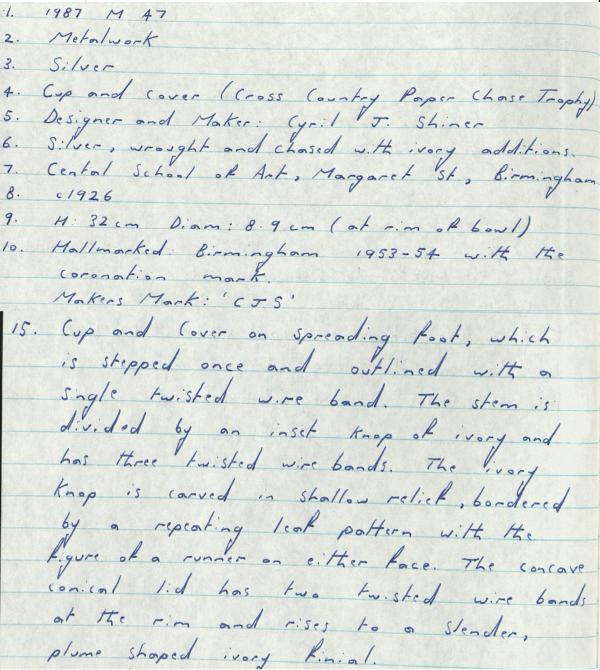 1. 1987 M 47
2. Metalwork
3. Silver
4. Cup and cover (Cross Country Paper Chase Trophy)
5. Designer and Maker: Cyril J. Shiner
6. Silver, wrought and chased with ivory additions.
7. Cental School of Art, Margaret St, Birmingham
8. c1926
9. H: 32cm Diam: 8.9cm (at rim of bowl)
10. Hallmarked: Birmingham 1953-54 with the
coronation mark.
Makers Mark: 'CJS'
15. Cup and Cover on spreading foot, which
is stepped once and outlined with a
single twisted wire band. The stem is
divided by an inset Knop of ivory and
has three twisted wire bands. The ivory
Knop is carved in shallow relief, bordered
by a repeating leaf pattern with the
figure of a runner on either face. The concave
conical lid has two twisted wire bands
at the rim and rises to a slender,
plume shaped ivory finial.